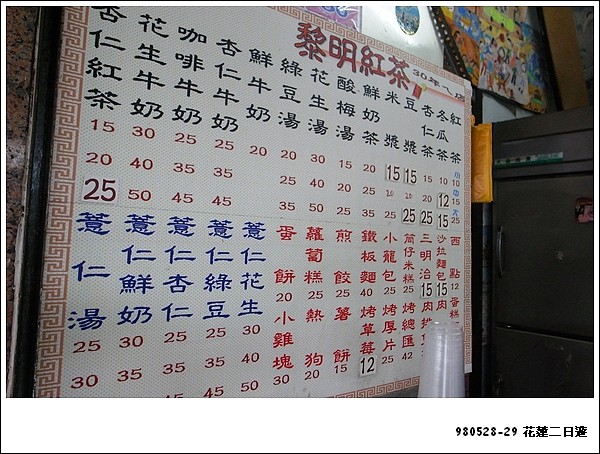 黎明紅茶
30年ㄟ店
紅茶 小10 中15 大25
冬瓜茶 10 12 15
杏仁茶 15 20 25
豆漿 15 20 25
米漿 15 20
鮮奶茶 20 25 35
酸梅湯 15 20 25
花生湯 30 35 50
綠豆湯 20 25 35
鮮牛奶 20
杏仁牛奶 25 35 45
咖啡牛奶 25 35 45
花生牛奶 30 40 50
杏仁紅茶 15 20 25
西點 12
蛋糕
沙拉麵包 15
肉
三明治 15
肉排
筒仔米糕 25
烤總匯 42
小龍包 25
烤厚片 25
鐵板麵 40
烤草莓 12
煎餃 25
薯餅 15
蘿蔔糕 25
熱狗 20
蛋餅 20
小雞塊 30
薏仁花生 30 40 50
薏仁綠豆 25 35 45
薏仁杏仁 25 35 45
薏仁鮮奶 30 35
薏仁湯 25 30
980528-29 花蓮二日遊